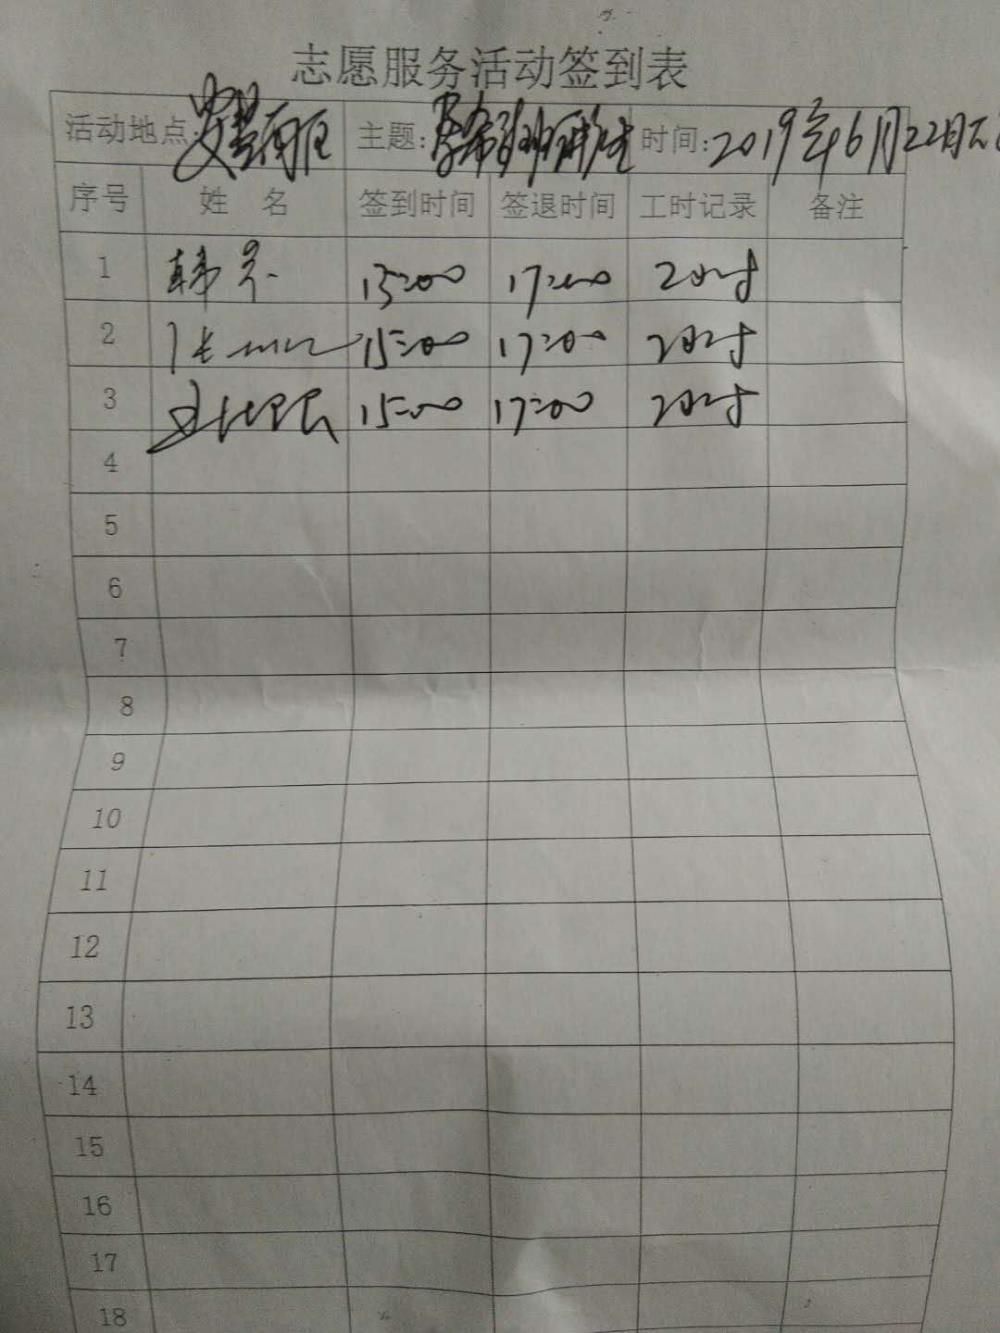 志愿服务活动签到表
活动地点: 主题: 时间: 2019年6月22日
序号 姓 名 签到时间 签退时间 工时记录 备注
1 韩 15:00 17:00 2小时
2 张 15:00 17:00 2小时
3 15:00 17:00 2小时
4
5
6
7
8
9
10
11
12
13
14
15
16
17
18